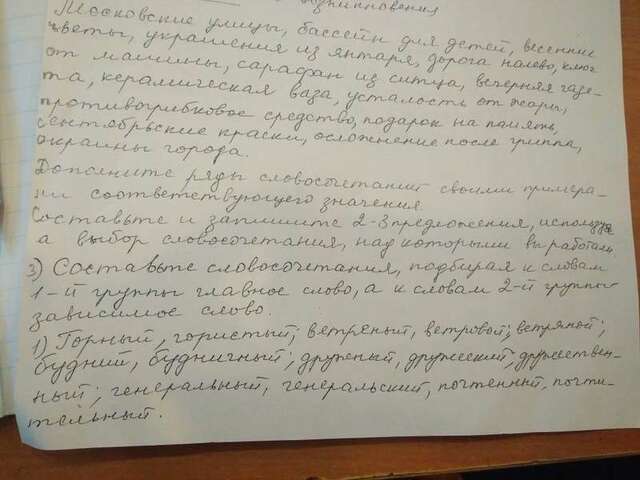 возникновения
Московские улицы, бассейн для детей, весенние
цветы, украшения из янтаря, дорога налево, ключ
от машины, сарафан из ситца, вечерняя газе-
та, керамическая ваза, усталость от жары,
противогрибковое средство, подарок на память,
сентябрьские краски, осложнение после гриппа,
окраины города.
Дополните ряды словосочетаний своими примера-
ми соответствующего значения.
Составьте и запишите 2-3 предложения, используя
а выбор словосочетания, над которыми вы работали
3) Составьте словосочетания, подбирая к словам
1-й группы главное слово, а к словам 2-й группы
зависимое слово.
1) Горный, гористый; ветреный, ветровой, ветряной;
будний, будничный; дружный, дружеский, дружествен-
ный; генеральный, генеральский, почтенный, почти-
тельный.